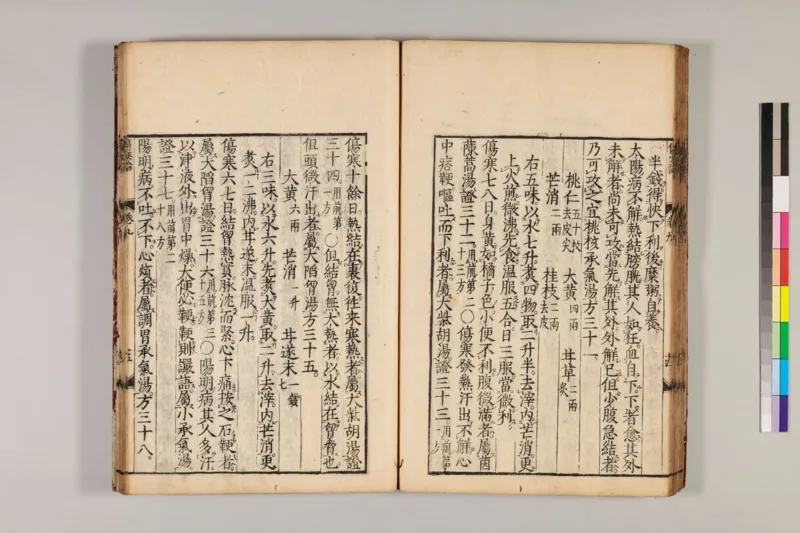 半錢得快下利後糜粥自養
太陽病不解熱結膀胱其人如狂血自下下者愈其外
未解者尚未可攻當先解其外外解已但少腹急結者
乃可攻之宜桃核承氣湯方三十一
桃仁五十枚去皮尖 大黃四兩 甘草二兩炙
芒消二兩 桂枝二兩去皮
右五味以水七升煮四物取二升半去滓內芒消更
上火煎微沸先食溫服五合日三服當微利
傷寒七八日身黃如橘子色小便不利腹微滿者屬茵
蔯蒿湯證三十二用前第二十三方○傷寒發熱汗出不解心
中痞鞕嘔吐而下利者屬大柴胡湯證三十三用前第一方
傷寒十餘日熱結在裏復往來寒熱者屬大柴胡湯證
三十四用前第一方○但結胷無大熱者以水結在胷脅也
但頭微汗出者屬大陷胷湯方三十五
大黃六兩 芒消一升 甘遂末一錢七
右三味以水六升先煮大黃取二升去滓內芒消更
煮一二沸內甘遂末溫服一升
傷寒六七日結胷熱實脉沈而緊心下痛按之石鞕者
屬大陷胷湯證三十六用前第三十五方○陽明病其人多汗
以津液外出胃中燥大便必鞕鞕則讝語屬小承氣湯
證三十七用前第二十八方
陽明病不吐不下心煩者屬調胃承氣湯方三十八